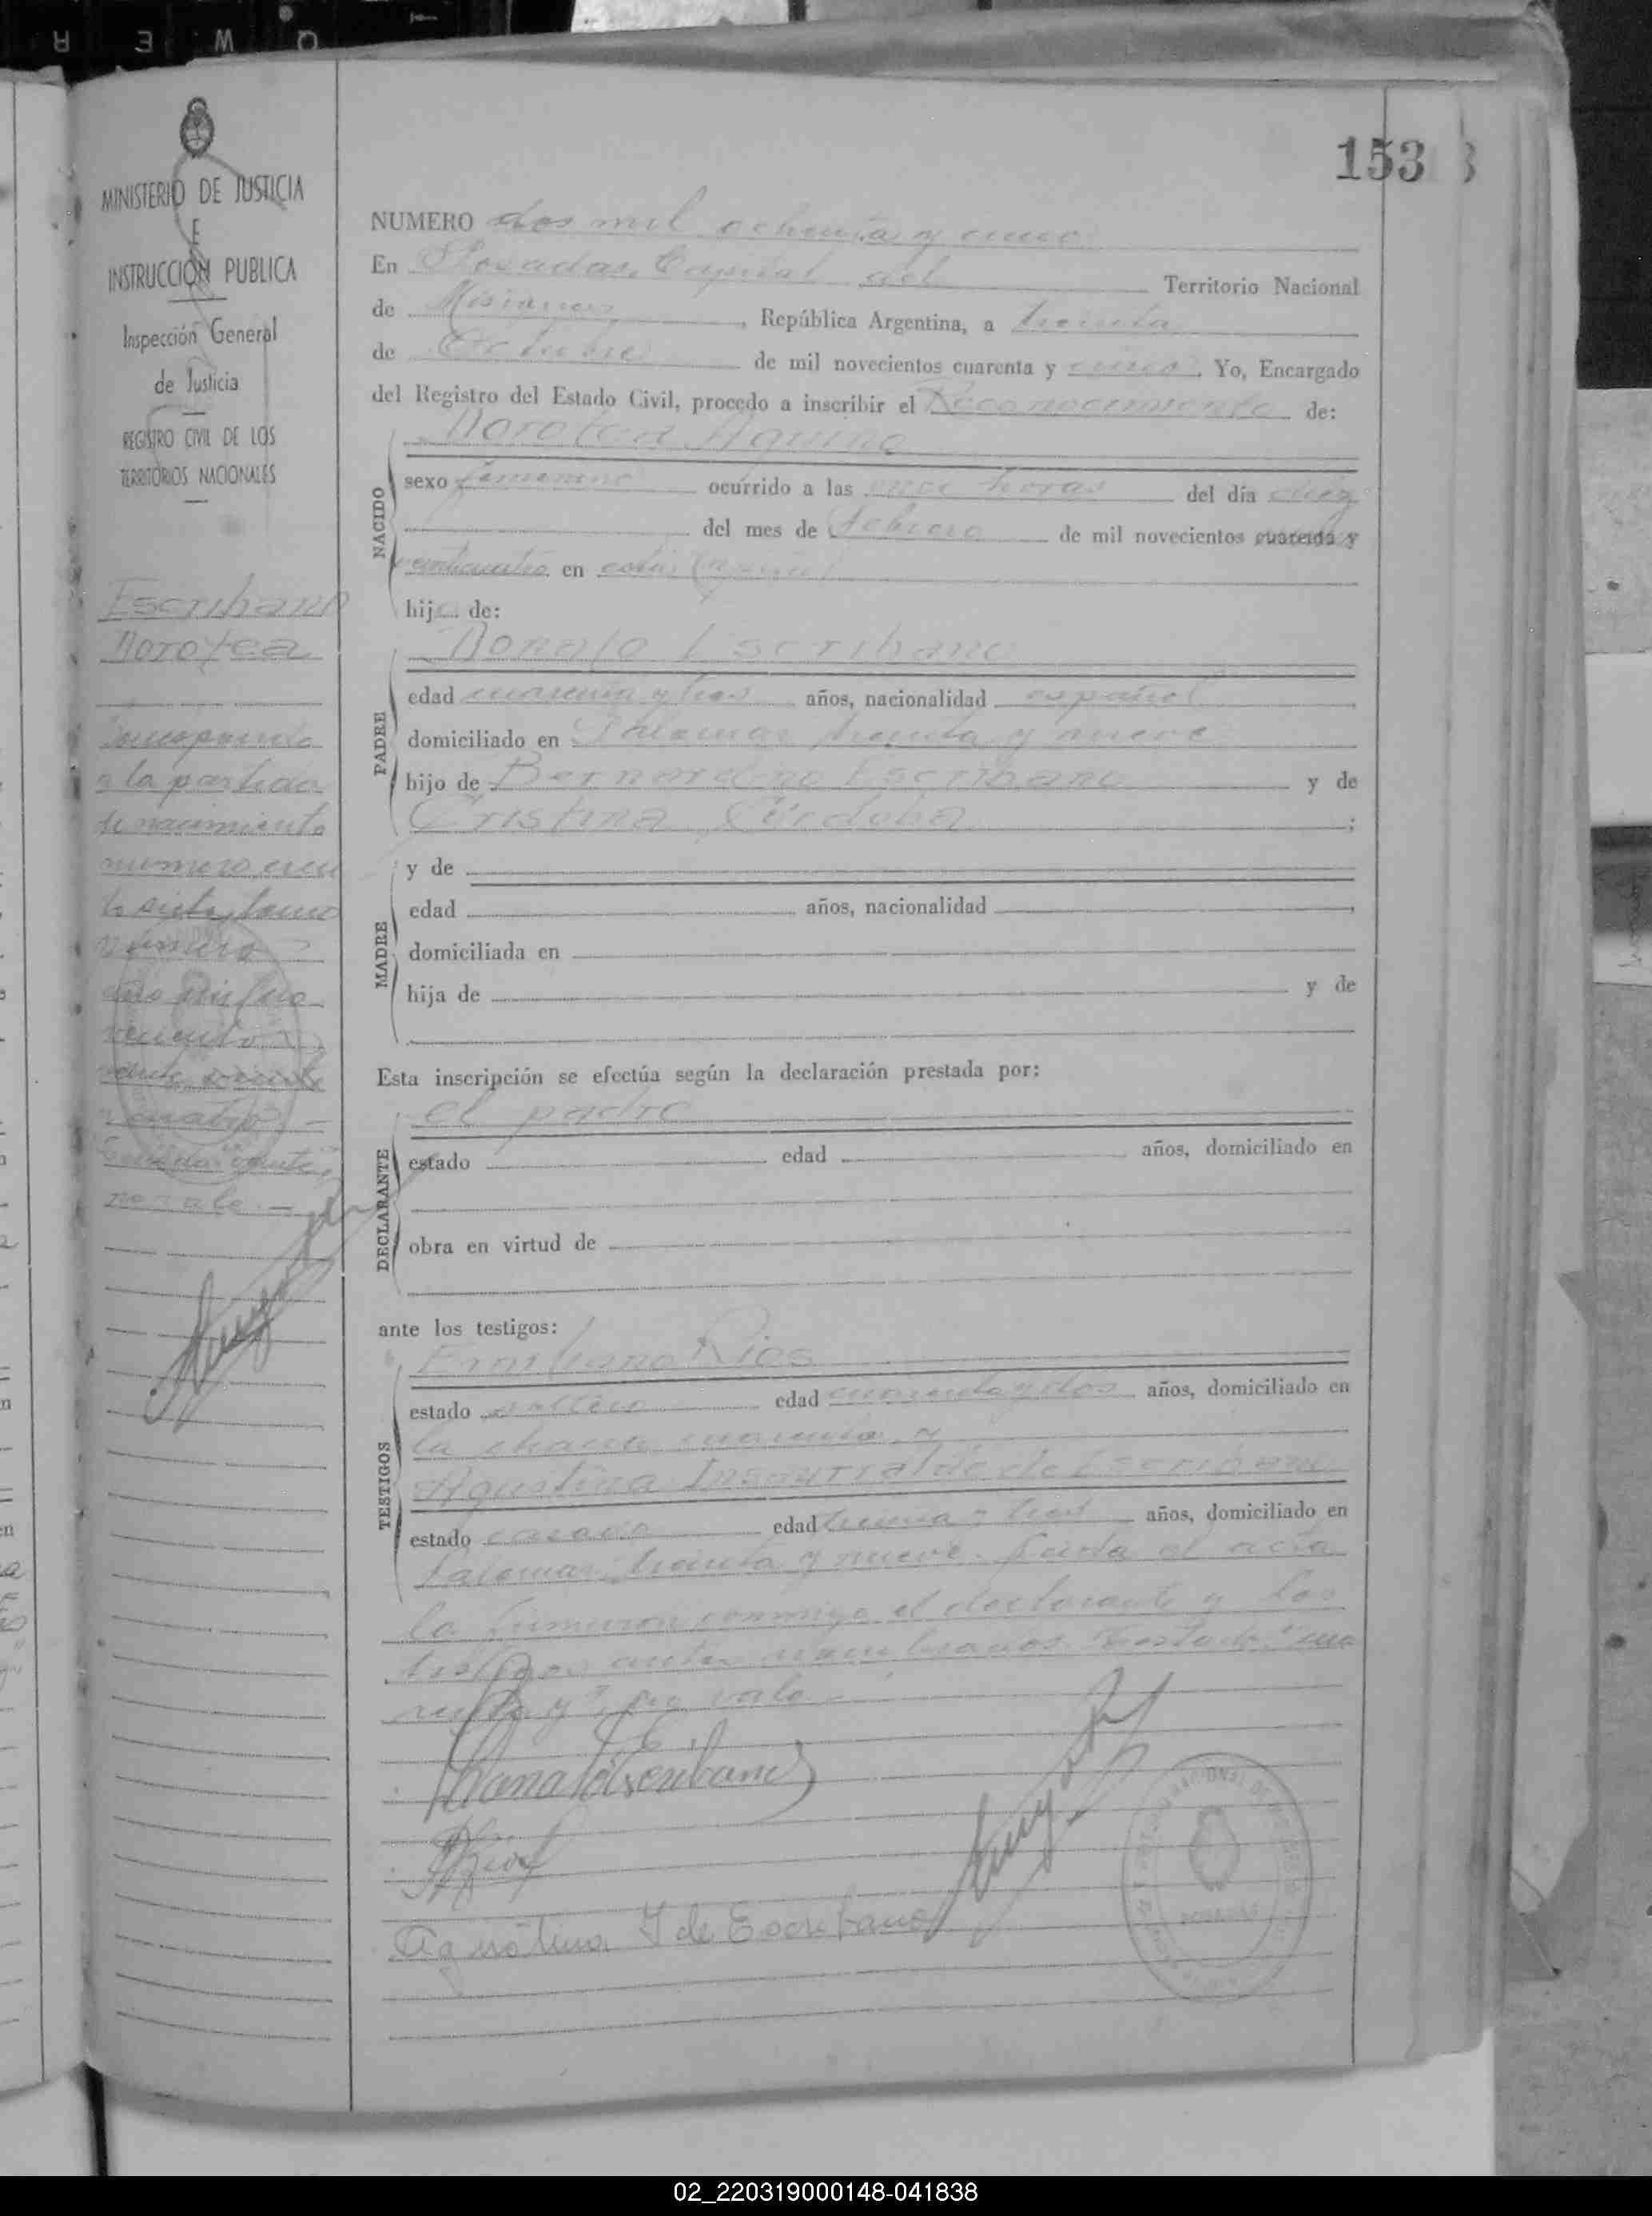 153
MINISTERIO DE JUSTICIA
E
INSTRUCCION PUBLICA
Inspección General
de Justicia
REGISTRO CIVIL DE LOS
TERRITORIOS NACIONALES
Escribano
Dorotea
Corresponde
a la partida
de nacimiento
numero cien
to siete, tomo
primero
año mil no
vecientos
veinte
cuatro —
no vale. —
NUMERO dos mil ochenta y cinco
En Posadas, Capital del Territorio Nacional
de Misiones, República Argentina, a treinta
de Octubre de mil novecientos cuarenta y cinco. Yo, Encargado
del Registro del Estado Civil, procedo a inscribir el Reconocimiento de:
Dorotea Aquino
NACIDO
sexo femenino ocurrido a las once horas del día diez
del mes de febrero de mil novecientos cuarenta y
veinticuatro en esta
hija de:
PADRE
Donato Escribano
edad cuarenta y tres años, nacionalidad español
domiciliado en Palomar treinta y nueve
hijo de Bernardino Escribano y de
Cristina Córdoba;
MADRE
y de
edad años, nacionalidad
domiciliada en
hija de y de
Esta inscripción se efectúa según la declaración prestada por:
DECLARANTE
el padre
estado edad años, domiciliado en
obra en virtud de
ante los testigos:
TESTIGOS
Emiliano Rios
estado soltero edad cuarenta y dos años, domiciliado en
la chacra cuarenta y
Agustina Insaurralde de Escribano
estado casada edad treinta y tres años, domiciliado en
Palomar treinta y nueve. Leida el acta
la firmaron conmigo el declarante y los
testigos antes nombrados. Testado: "cua
renta y" no vale. —
Donato Escribano
ERios
Agustina I de Escribano
02_220319000148-041838